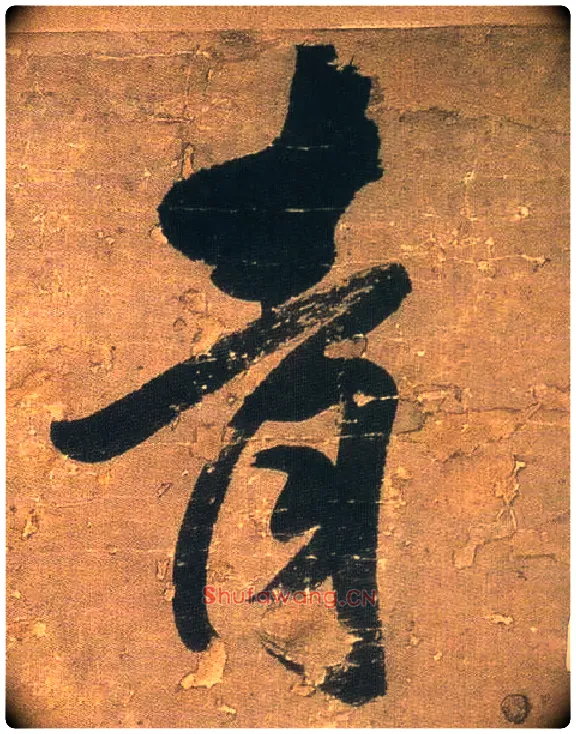 青
Shufawang.CN